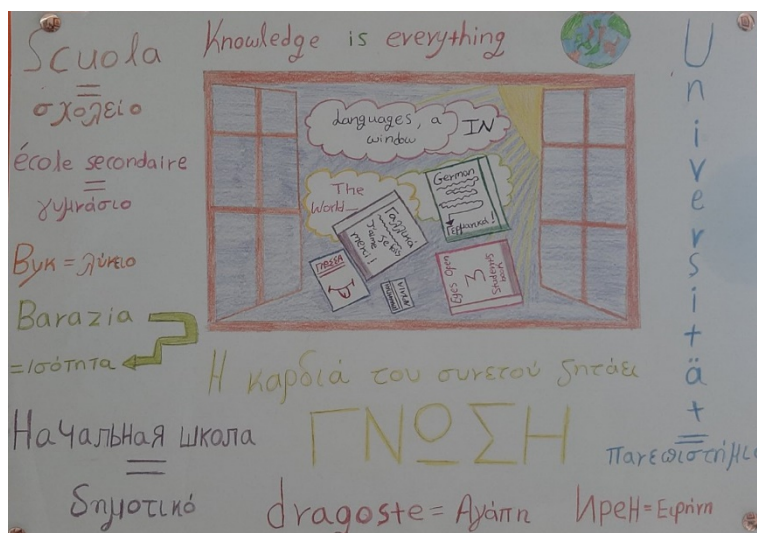 Scuola
=
σχολείο
école secondaire
=
γυμνάσιο
Вук = λύκειο
Barazia
=Ισότητα
Начальная школа
=
δημοτικό
Knowledge is everything
Languages, a
window
IN
The
World
German
Γερμανικά!
Γαλλικά
J'aime
merci!
Open
Students
Η καρδιά του συνετού ζητάει
ΓΝΩΣΗ
dragoste = Αγάπη
Ирен = Ειρήνη
Universität
=
Πανεπιστήμιο